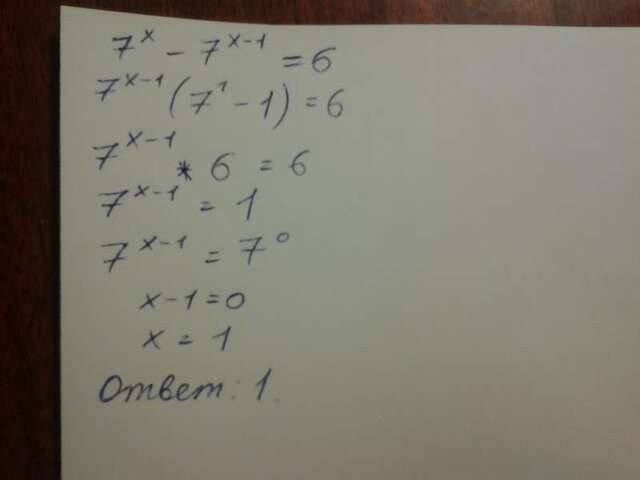 7^x - 7^{x-1} = 6
7^{x-1} (7^1 - 1) = 6
7^{x-1} * 6 = 6
7^{x-1} = 1
7^{x-1} = 7^0
x - 1 = 0
x = 1
Ответ: 1.